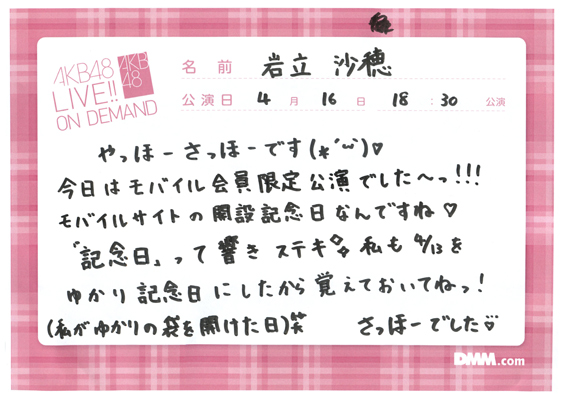 AKB48
LIVE!!
ON DEMAND
AKB
48
名前 岩立 沙穂
公演日 4月 16日 18:30 公演
やっほーさっほーです(*´ω`)♡
今日はモバイル会員限定公演でした〜っ!!!
モバイルサイトの開設記念日なんですね♡
「記念日」って響きステキ 私も4/13を
ゆかり記念日にしたから覚えておいてねっ!
(私がゆかりの袋を開けた日)笑 さっほーでした♡
DMM.com